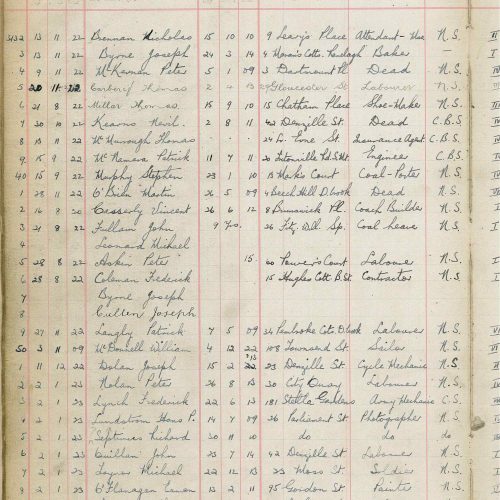 5132 13 11 22 Brennan Nicholas 15 10 10 9 Leary's Place Attendant N.S.
3 13 11 22 Byrne Joseph 24 3 14 4 Ranelagh Baker —
4 9 11 22 Peter 5 1 09 3 Dartmouth Pl Dead N.S.
5 20 11 22 Thomas 2 4 Gloucester St Labourer N.S.
6 21 8 22 Millar Thomas 15 9 10 15 Chatham Place Shoe-Maker N.S.
7 30 10 22 Kearns Nevil 2 8 11 42 Denzille St Dead C.B.S.
8 13 11 22 McMurrough Thomas 24 L. Tone St Insurance Agent C.B.S.
9 15 9 22 McNamara Patrick 11 7 11 20 Engineer C.B.S.
40 15 9 22 Murphy Stephen 23 1 10 15 Mark's Court Coal-Porter N.S.
1 28 11 22 O'Brien Martin 26 5 09 4 Beech Hill D.brook Dead N.S.
2 16 8 20 Casserly Vincent 26 6 12 8 Brunswick Pl. Coach Builder N.S.
3 21 8 22 Fullam John 9 26 Fitz. Sp. Coal N.S.
4 Leonard Michael
5 28 8 22 Peter 15. 20 Power's Court Labourer N.S.
6 28 8 22 Coleman Frederick 15 Hughes Cott B. St Contractor N.S.
7 Byrne Joseph
8 Cullen Joseph
9 27 11 22 Langly Patrick 7 5 09 24 Pembroke Cots D.brook Labourer N.S.
50 3 11 09 McDonnell William 4 12 22 108 Townsend St. Sailor N.S.
1 11 12 22 Dolan Joseph 15 2 22 13 23 Denzille St Cycle Mechanic N.S.
2 2 1 23 Nolan Peter 26 8 13 30 City Quay Labourer N.S.
3 2 1 23 Lynch Frederick 22 6 13 181 Stella Gardens Army Mechanic C.S.
4 2 1 23 Lundstrom Hans P. 14 7 09 26 Parliament St Photographer N.S.
5 2 1 23 Septimus Richard 30 11 10 do do do
6 2 1 23 Quillan John 23 7 14 42 Denzille St Labourer N.S.
7 2 1 23 Michael 22 12 13 23 Moss St. Soldier N.S.
8 2 1 23 O'Flanagan Eamon 13 2 11 95 Gordon St Painter N.S.